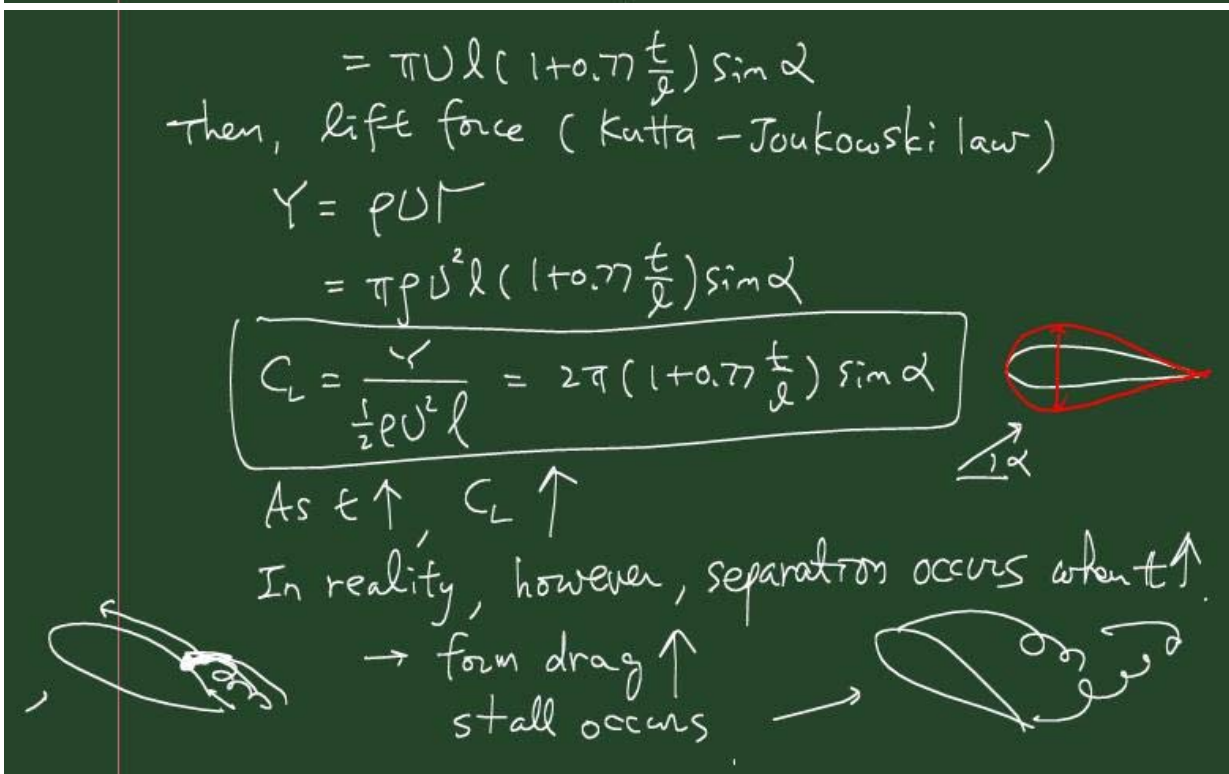 = πUl(1+0.77 t/l) sin α
Then, lift force (Kutta-Joukowski law)
Y = ρUΓ
= πρU²l(1+0.77 t/l) sin α
C_L = Y / (½ρU²l) = 2π(1+0.77 t/l) sin α
α
As t↑, C_L ↑
In reality, however, separation occurs when t↑.
→ form drag ↑
stall occurs →